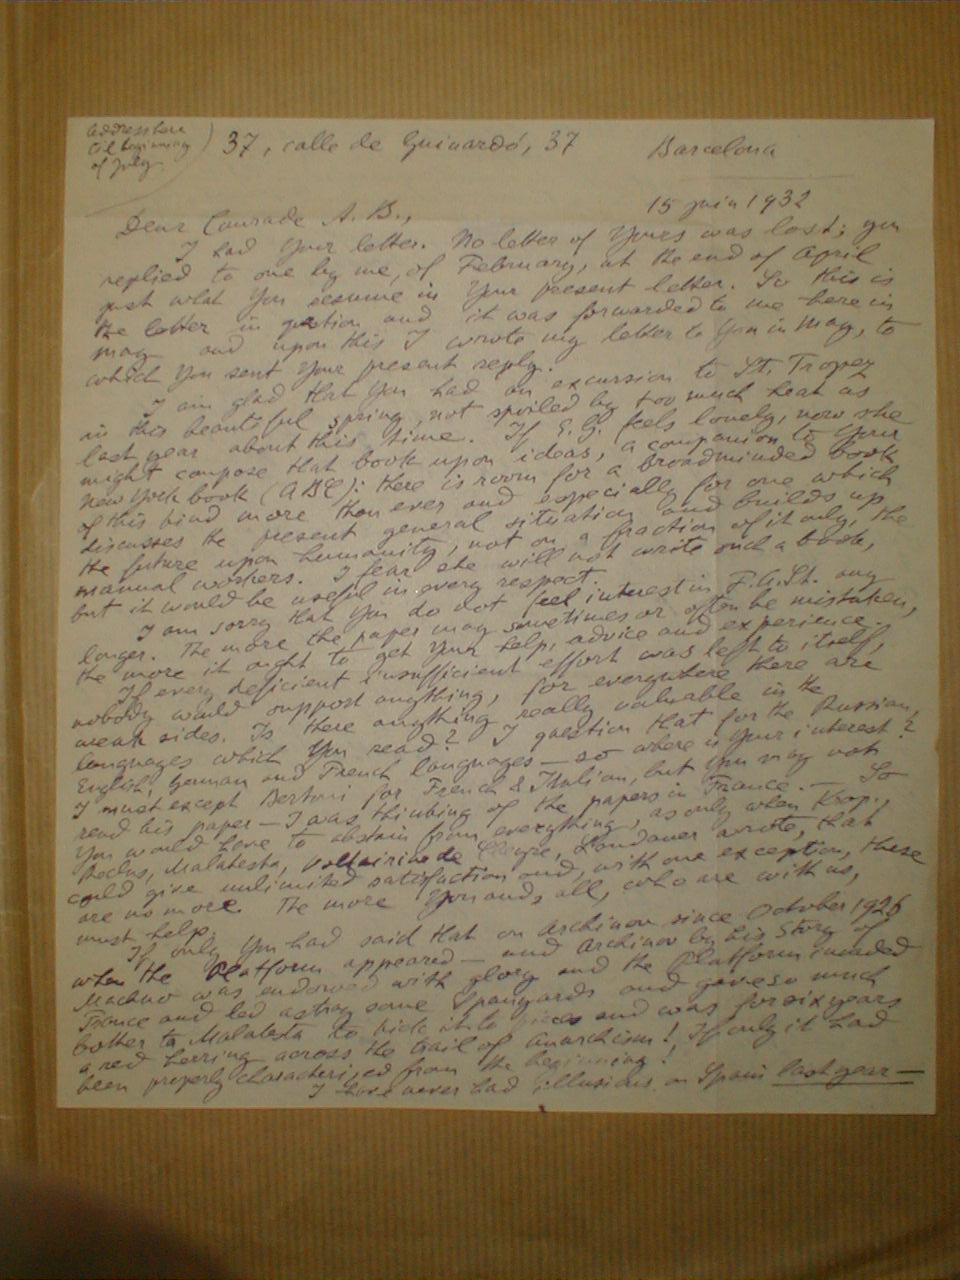 address here
til beginning
of July
37, calle de Guinardó, 37 Barcelona
15 juin 1932
Dear Comrade A. B.,
I had your letter. No letter of Yours was lost; you
replied to one by me, of February, at the end of April
just what You resume in Your present letter. So this is
the letter in question and it was forwarded to me here in
may and upon this I wrote my letter to You in May, to
which You sent Your present reply.
I am glad that You had an excursion to St. Tropez
in this beautiful spring, not spoiled by too much heat as
last year about this time. If E.G. feels lonely, now she
might compose that book upon ideas, a companion to Your
New York book (ABC): there is room for a broadminded book
of this kind more than ever and especially for one which
discusses the present general situation and builds up
the future upon humanity, not on a fraction of it only, the
manual workers. I fear she will not write such a book,
but it would be useful in every respect.
I am sorry that You do not feel interest in F.A.St. any
longer. The more the paper may sometimes or often be mistaken,
the more it ought to get Your help, advice and experience.
If every deficient insufficient effort was left to itself,
nobody would support anything, for everywhere there are
weak sides. Is there anything really valuable in the
languages which You read? I question that for the Russian,
English, German and French languages — so where is Your interest?
I must except Bertoni for French & Italian, but You may not
read his paper — I was thinking of the papers in France. — So
You would have to abstain from everything, as only when Krop.,
Reclus, Malatesta, Voltairine de Cleyre, Landauer wrote, that
could give unlimited satisfaction and, with one exception, these
are no more. The more You and all, who are with us,
must help.
If only You had said that on Archinov since October 1926
when the Platform appeared — and Archinov by his Story of
Machno was endowed with glory and the Platform invaded
France and led astray some Spaniards and gave so much
bother to Malatesta to pick it to pieces and was for six years
a red herring across the trail of anarchism! If only it had
been properly characterized from the beginning!
I have never had illusions on Spain last year —